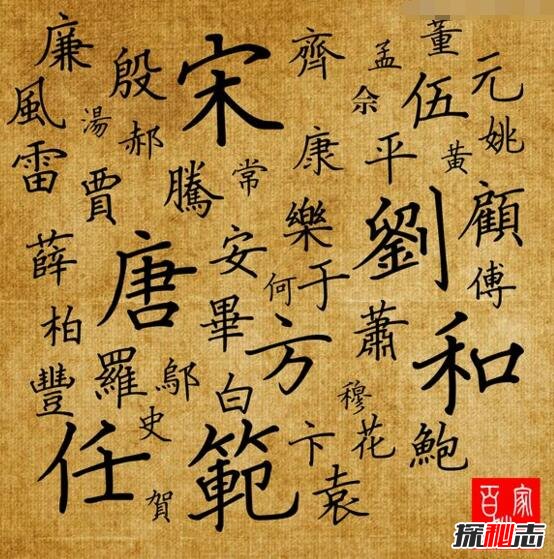 廉
殷
宋
齊
孟
董
元
風
湯
郝
佘
伍
姚
雷
賈
騰
常
康
平
黃
薛
唐
安
樂
劉
顧
柏
畢
何
于
蕭
傅
豐
羅
鄔
白
方
穆
和
任
史
賀
範
卞
花
鮑
袁
百家
探秘志